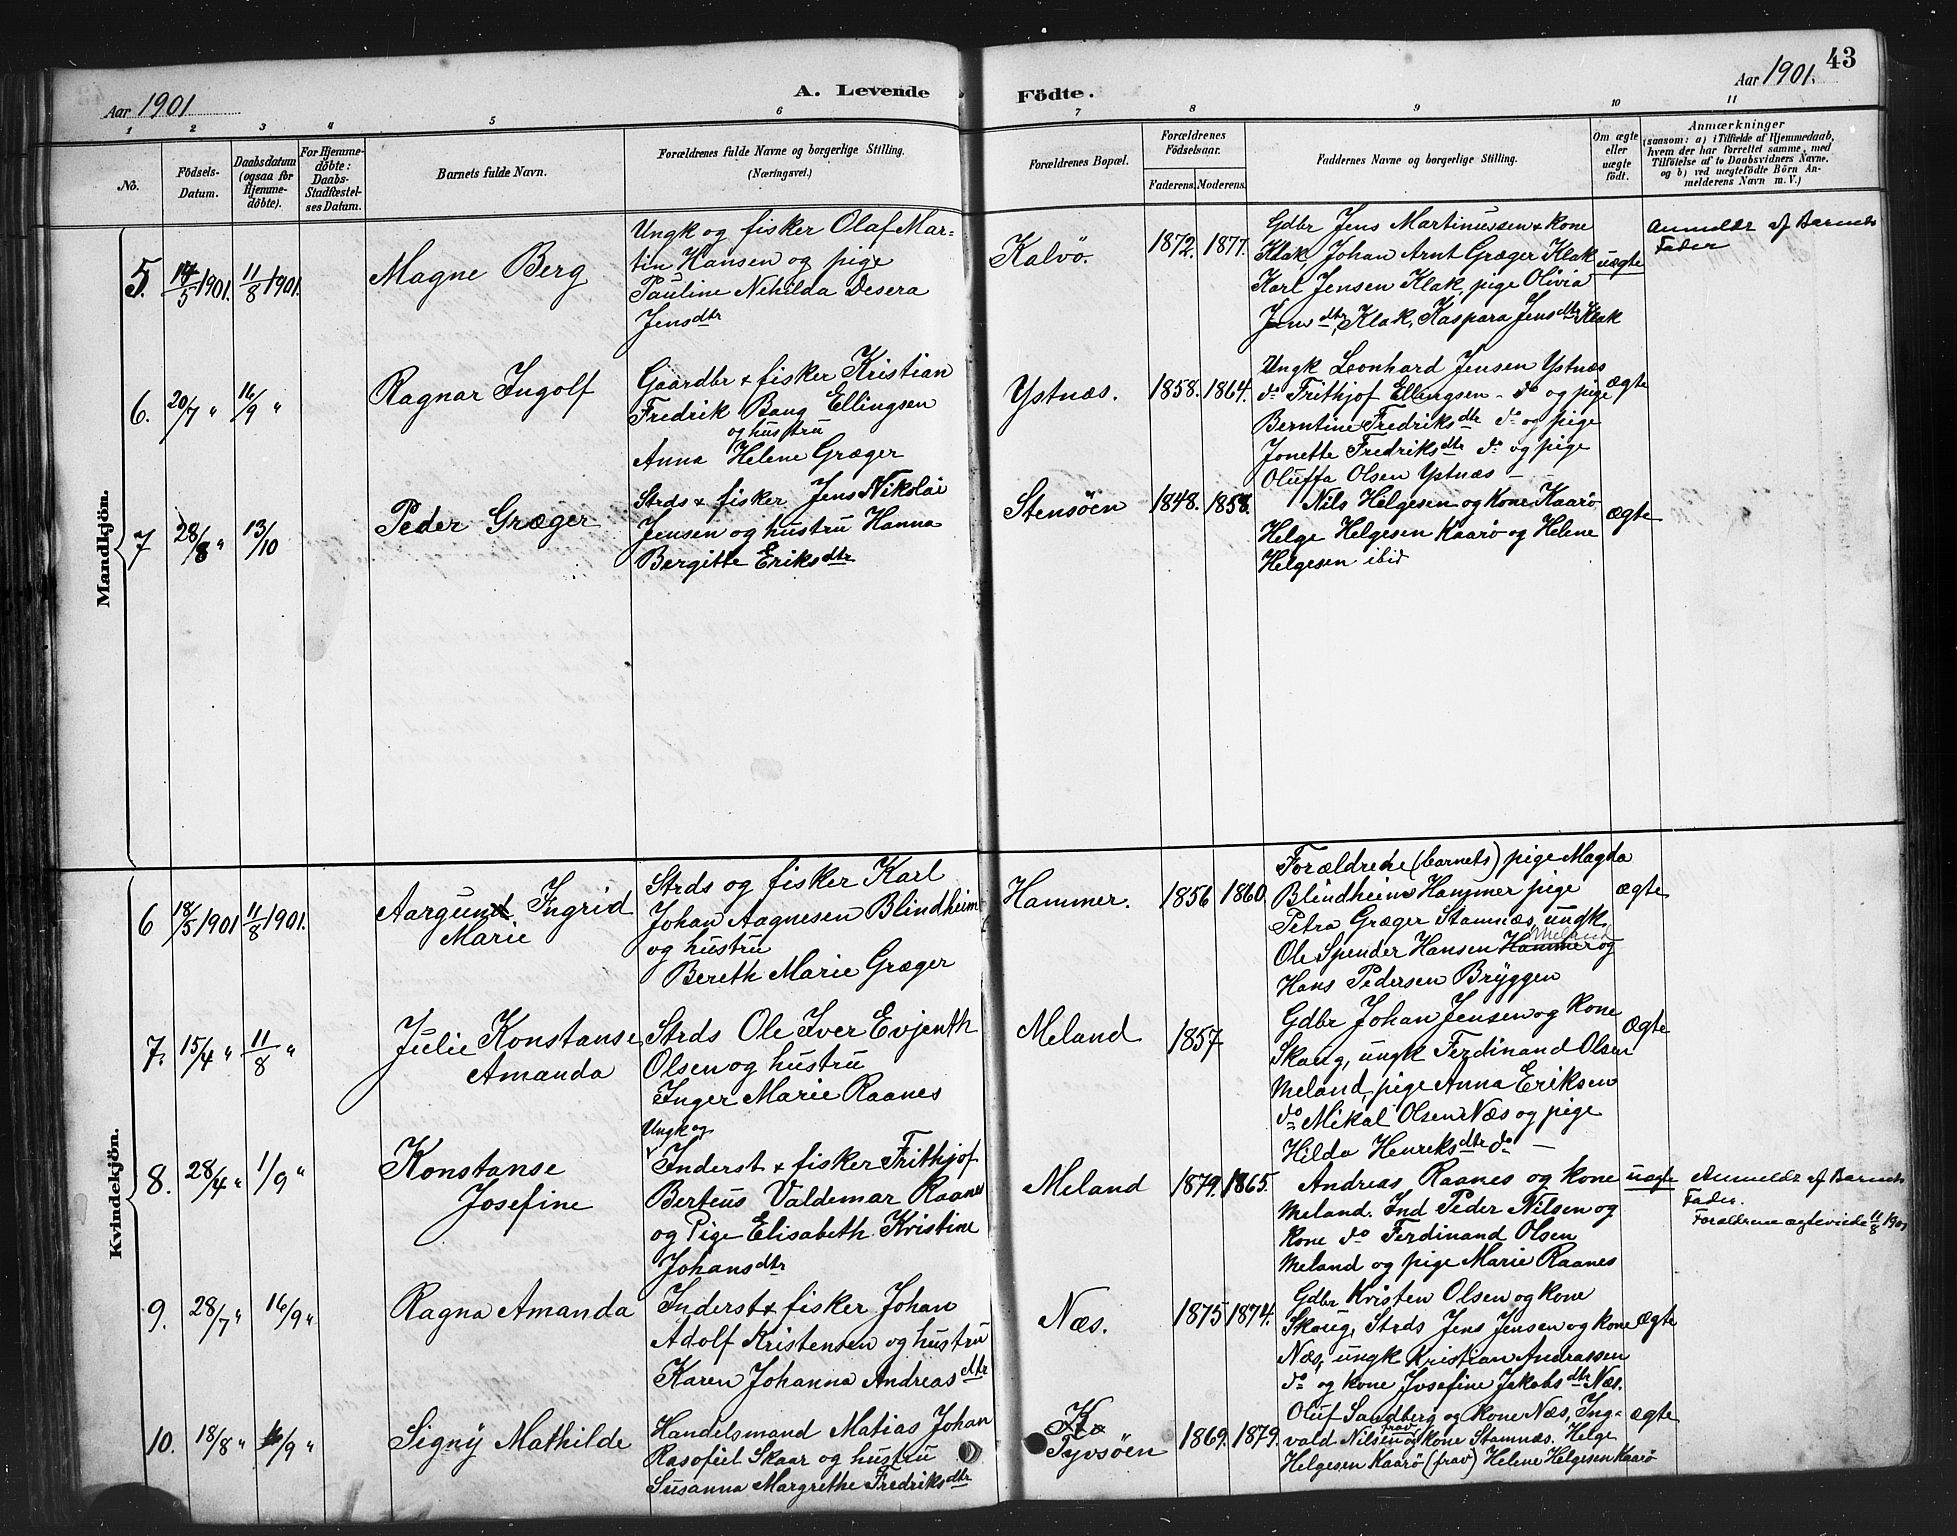 43
Aar 1901
A. Levende Födte.
Aar 1901.
1 2 3 4 5 6 7 8 9 10 11
No.
Födsels-
Datum.
Daabsdatum
(ogsaa for
Hjemme-
döbte).
For Hjemme-
döbte:
Daabs-
Stadfæstel-
ses Datum.
Barnets fulde Navn.
Forældrenes fulde Navne og borgerlige Stilling.
(Næringsvei.)
Forældrenes Bopæl.
Forældrenes
Födselsaar.
Faderens. Moderens.
Faddernes Navne og borgerlige Stilling.
Om ægte
eller
uægte
födt.
Anmærkninger
(saasom: a) i Tilfælde af Hjemmedaab,
hvem der har forrettet samme, med
Tilföielse af to Daabsvidners Navne.
og b) ved uægtefödte Börn An-
melderens Navn m. V.)
Mandkjön.
5. 14/5 1901. 11/8 1901.
Magne Berg
Ungk og fisker Olaf Mar=
tin Hansen og pige
Pauline Nehilda Desera
Jensdtr
Kalvö. 1872. 1877.
Gdbr Jens Martinussen & kone
Klak, Johan Arnt Græger Klak
Karl Jensen Klak, pige Olivia
Jensdtr, Klak, Kaspara Jensdtr Klak
uægte
Anmeldt af Barnets
Fader
6. 20/7 " 16/9 "
Ragnar Ingolf
Gaardbr & fisker Kristian
Fredrik Bang Ellingsen
og hustru
Anna Helene Græger
Ystnæs. 1858. 1864.
Ungk Leonhard Jensen Ystnæs
do Frithjof Ellingsen - do og pige
Berntine Fredriksdtr do og pige
Jonette Fredriksdtr do og pige
Oluffa Olsen Ystnæs —
ægte
7 28/8 " 13/10
Peder Græger
Strds & fisker Jens Nikolai
Jensen og hustru Hanna
Bergitte Eriksdtr
Stensöen 1848. 1858.
Nils Helgesen og kone Kaarö
Helge Helgesen Kaarö og Helene
Helgesen ibid
ægte
Kvindekjön.
6 18/5 1901 11/8 1901.
Aargund. Ingrid
Marie
Strds og fisker Karl
Johan Aagnesen Blindheim
og hustru
Bereth Marie Græger
Hammer. 1856 1860.
Forældrene (barnets) pige Magda
Blindheim Hammer pige
Petra Græger Stamnæs, ungk
Meland
Ole Spender Hansen Hammer og
Hans Pedersen Bryggen
ægte
7. 15/4 " 11/8 "
Julie Konstanse
Amanda
Strds Ole Iver Evjenth
Olsen og hustru
Inger Marie Raanes
Meland 1857
Gdbr Johan Jensen og kone
Skaug, ungk Ferdinand Olsen
Meland, pige Anna Eriksen
do Mikal Olsen Næs og pige
Hilda Henriksdtr do —
ægte
8. 28/4 " 1/9 "
Konstanse
Josefine
Ungk og
Inderst & fisker Frithjof
Berteus Valdemar Raanes
og Pige Elisabeth Kristine
Johansdtr
Meland 1879. 1865.
Andreas Raanes og kone
Meland. Ind Peder Nilsen og
kone do Ferdinand Olsen
Meland og pige Marie Raanes
uægte
Anmeldt af Barnets
Fader.
Forældrene ægteviede 11/8 1901
9. 28/7 " 16/9 "
Ragna Amanda
Inderst & fisker Johan
Adolf Kristensen og hustru
Karen Johanna Andreasdtr
Næs. 1875 1874.
Gdbr Kristen Olsen og kone
Skaug, Strds Jens Jensen og kone
Næs, ungk Kristian Andreassen
do og kone Josefine Jakobsdtr Næs.
ægte
10. 18/8 " 16/9 "
Signy Mathilde
Handelsmand Matias Johan
Rasofiel Skaar og hustru
Susanna Margrethe Fredriksdtr
Tyvsöen 1869. 1879.
Oluf Sandberg og kone Næs, Ing=
vald Nilsen og kone Stamnæs. Helge
Helgesen Kaarö (frav) Helene Helgesen Kaarö
ægte